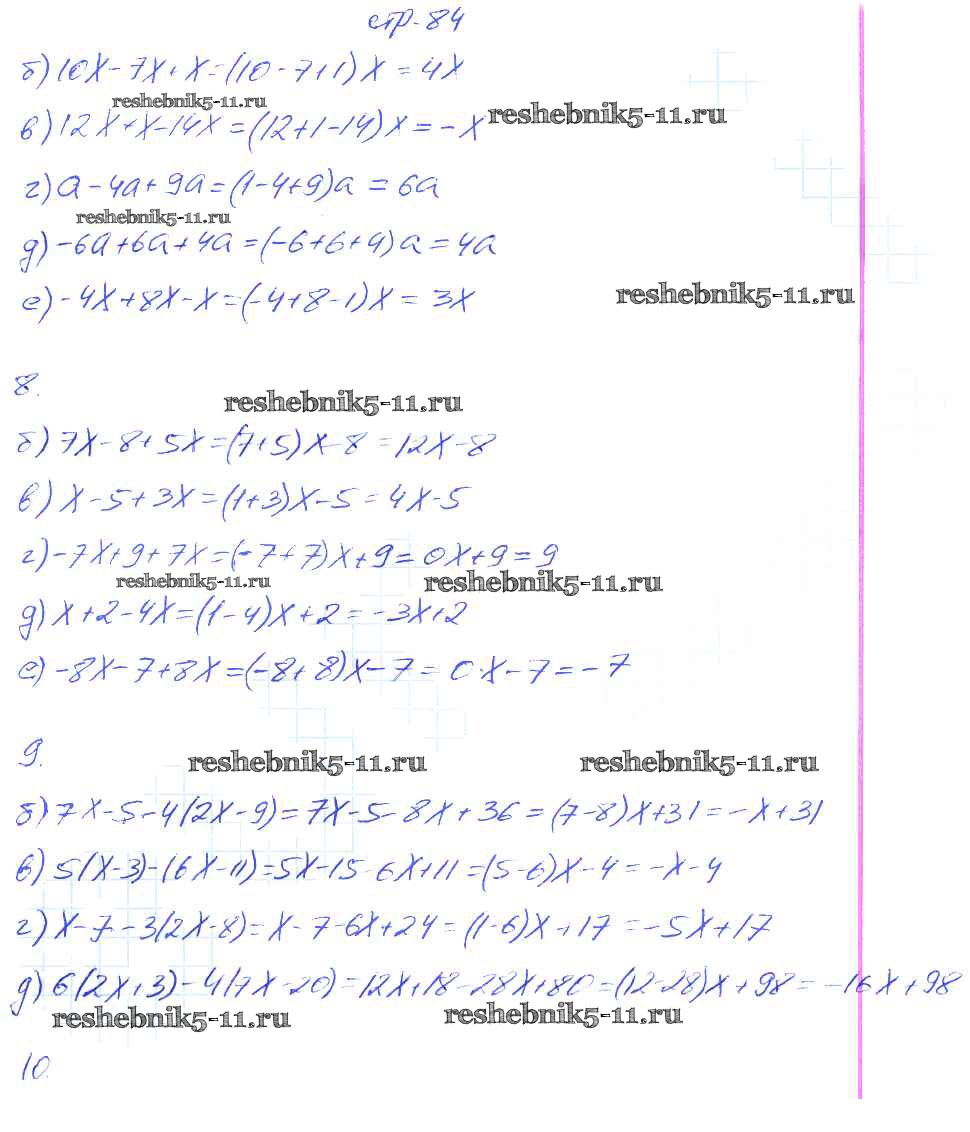 стр-84
б) 10x - 7x + x = (10 - 7 + 1) x = 4x
reshebnik5-11.ru
reshebnik5-11.ru
в) 12x + x - 14x = (12 + 1 - 14) x = -x
г) a - 4a + 9a = (1 - 4 + 9) a = 6a
reshebnik5-11.ru
д) -6a + 6a + 4a = (-6 + 6 + 4) a = 4a
е) -4x + 8x - x = (-4 + 8 - 1) x = 3x
reshebnik5-11.ru
8.
reshebnik5-11.ru
б) 7x - 8 + 5x = (7 + 5) x - 8 = 12x - 8
в) x - 5 + 3x = (1 + 3) x - 5 = 4x - 5
г) -7x + 9 + 7x = (-7 + 7) x + 9 = 0x + 9 = 9
reshebnik5-11.ru
reshebnik5-11.ru
д) x + 2 - 4x = (1 - 4) x + 2 = -3x + 2
е) -8x - 7 + 8x = (-8 + 8) x - 7 = 0·x - 7 = -7
9.
reshebnik5-11.ru
reshebnik5-11.ru
б) 7x - 5 - 4(2x - 9) = 7x - 5 - 8x + 36 = (7 - 8) x + 31 = -x + 31
в) 5(x - 3) - (6x - 11) = 5x - 15 - 6x + 11 = (5 - 6) x - 4 = -x - 4
г) x - 7 - 3(2x - 8) = x - 7 - 6x + 24 = (1 - 6) x + 17 = -5x + 17
д) 6(2x + 3) - 4(7x - 20) = 12x + 18 - 28x + 80 = (12 - 28) x + 98 = -16x + 98
reshebnik5-11.ru
reshebnik5-11.ru
10.